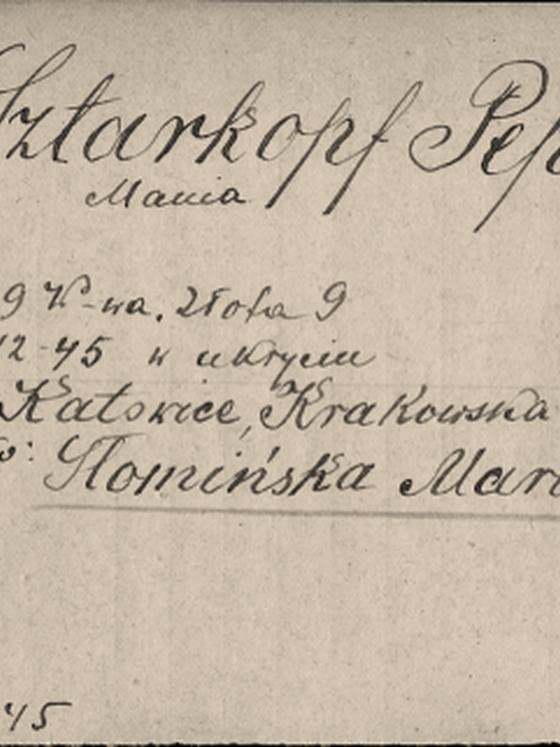 Sztarkopf Pep
Mania
9 W-wa. Złota 9
42-45 w ukryciu
Katowice, Krakowska
Słomińska Mar
45